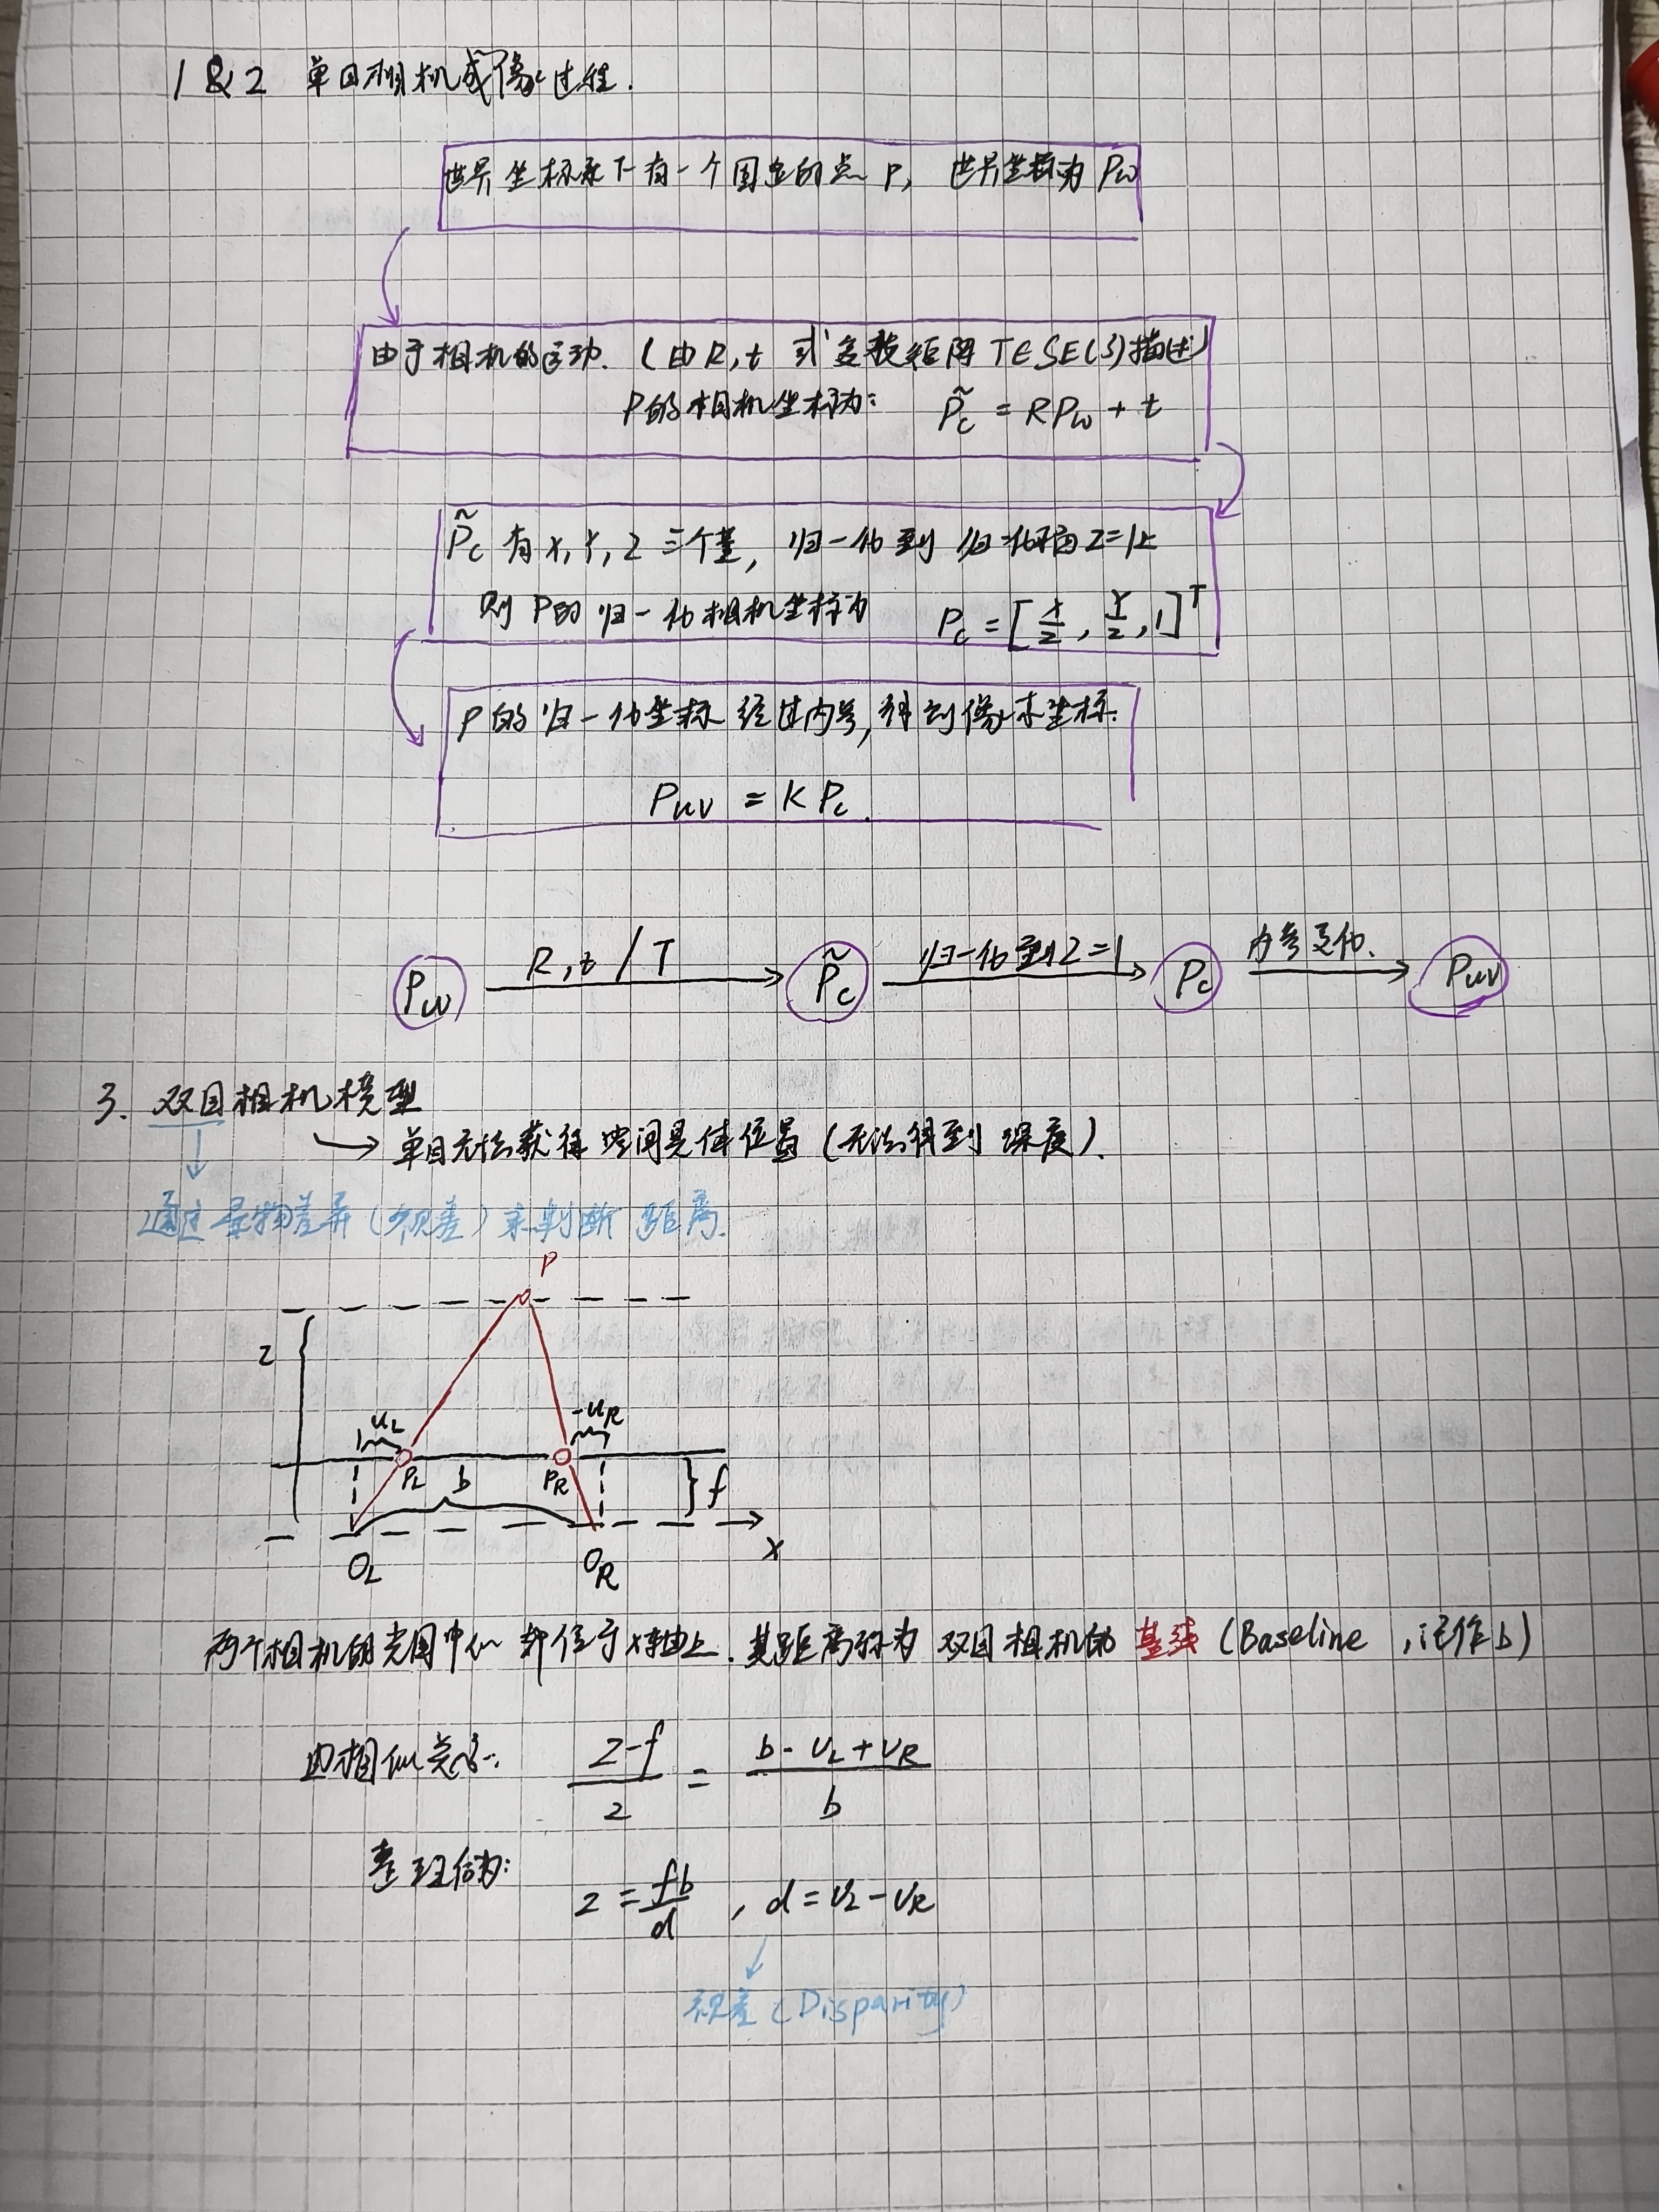 1 & 2 单目相机成像过程.
世界坐标系下有一个固定的点 P, 世界坐标为 Pw
由于相机的运动. (由 R, t 或变换矩阵 T∈SE(3)描述)
P的相机坐标为: P̃c = RPw + t
P̃c 有 X, Y, Z 三个量, 归一化到 归一化平面 Z=1上
则 P的 归一化相机坐标为 Pc = [X/Z, Y/Z, 1]^T
P的归一化坐标 经过内参, 得到像素坐标.
Puv = K Pc.
Pw R, t / T P̃c 归一化到Z=1 Pc 内参变化. Puv
3. 双目相机模型
→ 单目无法获得 空间具体位置 (无法得到 深度).
通过景物差异 (视差) 来判断 距离.
P
z
uL -uR
PL b PR f
x
OL OR
两个相机的光圈中心 都位于 x轴上. 其距离称为 双目相机的 基线 (Baseline , 记作 b)
由相似关系: (z-f)/z = (b - uL + uR)/b
整理后为:
z = fb/d , d = uL - uR
视差 (Disparity)